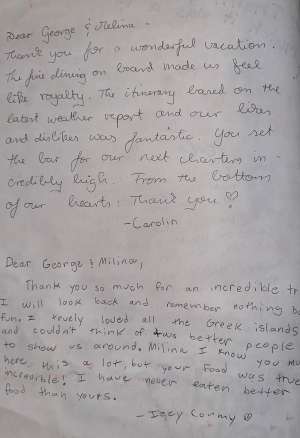 Dear George & Melina -
Thank you for a wonderful vacation.
The fine dining on board made us feel
like royalty. The itinerary based on the
latest weather report and our likes
and dislikes was fantastic. You set
the bar for our next charters in-
credibly high. From the bottom
of our hearts: Thank you ♡
-Carolin
Dear George & Milina,
Thank you so much for an incredible tr
I will look back and remember nothing b
fun. I truely loved all the Greek islands
and couldn't think of two better people
to show us around. Milina I know you mu
here this a lot, but your food was true
incredible! I have never eaten better
food than yours.